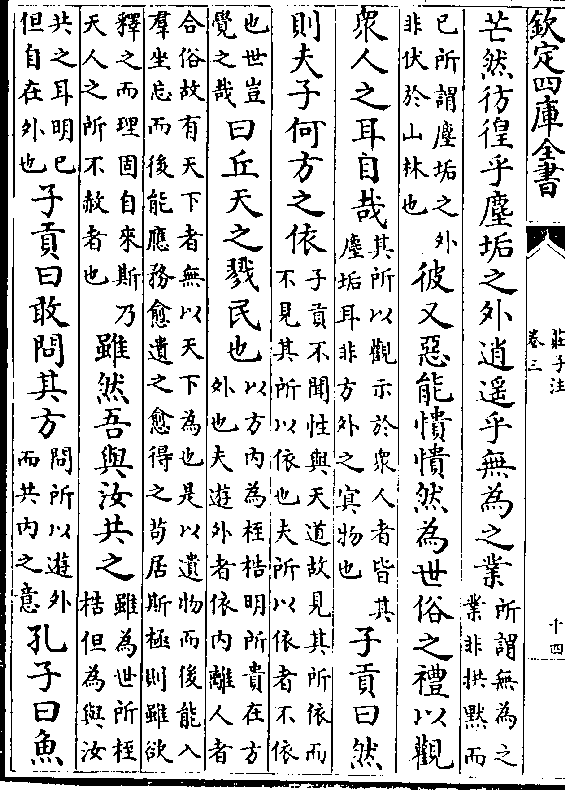 欽定四庫全書
莊子注
卷三
十四
芒然彷徨乎塵垢之外逍遥乎無為之業所謂無為之業非拱黙而
已所謂塵垢之外非伏於山林也彼又惡能憒憒然為世俗之禮以觀
衆人之耳目哉其所以觀示於衆人者皆其塵垢耳非方外之㝠物也子貢曰然
則夫子何方之依子貢不聞性與天道故見其所依而不見其所以依也夫所以依者不依
也世豈覺之哉曰丘天之戮民也以方内為桎梏明所貴在方外也夫遊外者依内離人者
合俗故有天下者無以天下為也是以遺物而後能入羣坐忘而後能應務愈遺之愈得之苟居斯極則雖欲
釋之而理固自來斯乃天人之所不赦者也雖然吾與汝共之雖為世所桎梏但為與汝
共之耳明已但自在外也子貢曰敢問其方問所以遊外而共内之意孔子曰魚